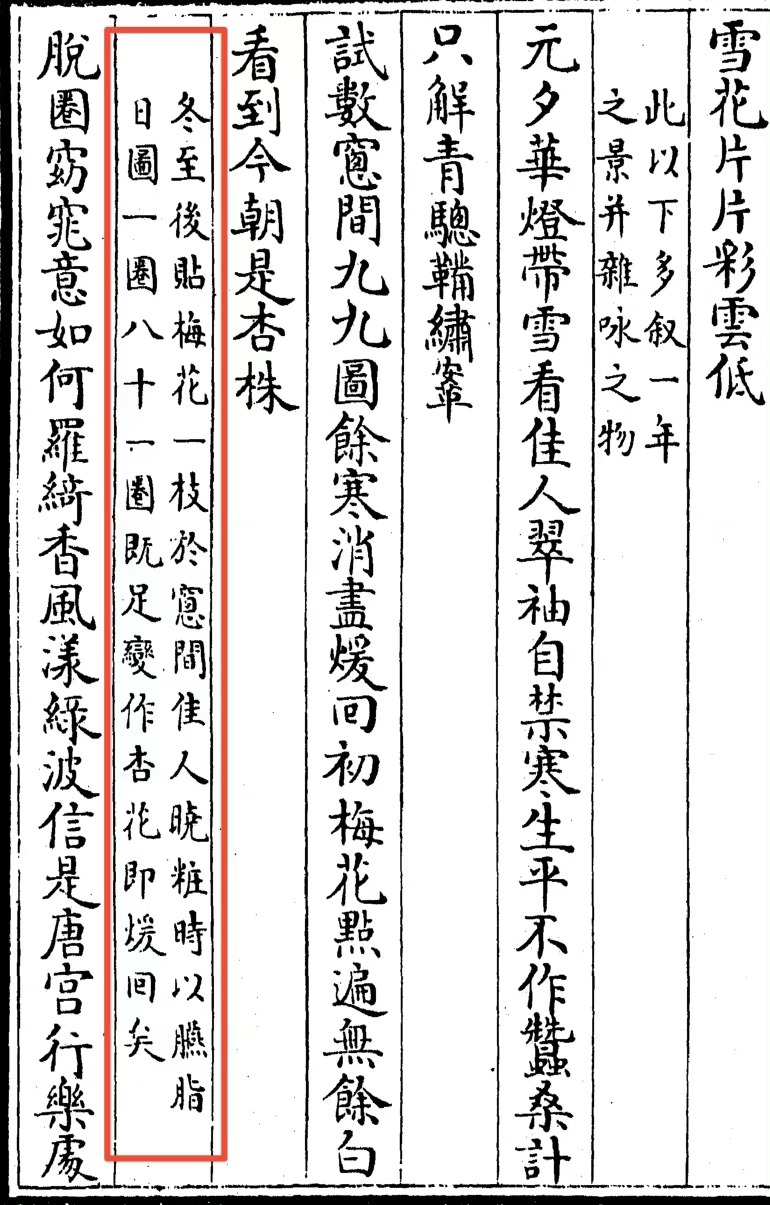 雪花片片彩雲低
此以下多叙一年
之景并雜咏之物
元夕華燈帶雪看佳人翠袖自禁寒生平不作蠶桑計
只解青驄鞴繡鞌
試數窻間九九圖餘寒消盡煖回初梅花點遍無餘白
看到今朝是杏株
冬至後貼梅花一枝於窻間佳人曉粧時以臙脂
日圖一圈八十一圈既足變作杏花即煖回矣
脫圈窈窕意如何羅綺香風漾綠波信是唐宮行樂處